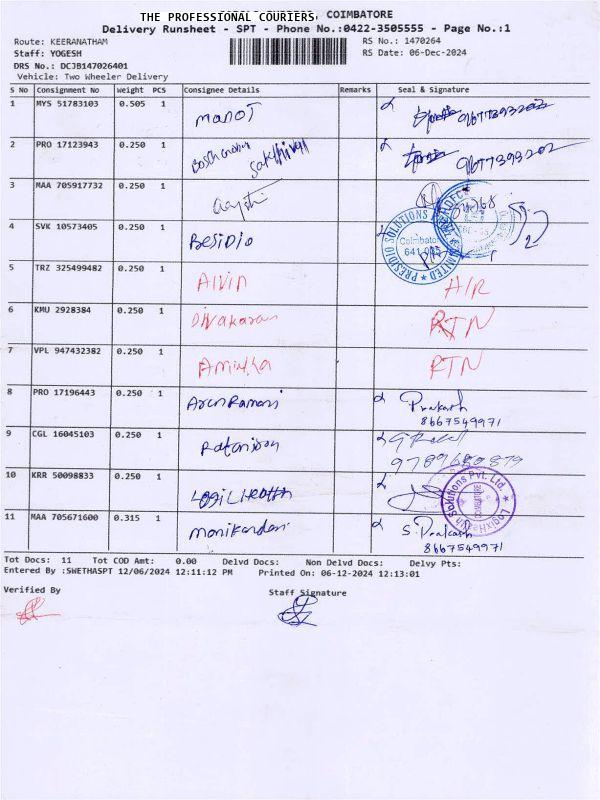 THE PROFESSIONAL COURIERS, COIMBATORE
Delivery Runsheet - SPT - Phone No.:0422-3505555 - Page No.:1
Route: KEERANATHAM RS No.: 1470264
Staff: YOGESH RS Date: 06-Dec-2024
DRS No.: DCJB147026401
Vehicle: Two Wheeler Delivery
S No Consignment No Weight PCS Consignee Details Remarks Seal & Signature
1 MYS 51783103 0.505 1 manoj
2 PRO 17123943 0.250 1 Sakthivel
3 MAA 705917732 0.250 1
4 SVK 10573405 0.250 1 BESIDIO
PRESIDIO SOLUTIONS LIMITED
Coimbatore
5 TRZ 325499482 0.250 1 Alvin
6 KMU 2928384 0.250 1 Divakaran RTN
7 VPL 947432382 0.250 1 RTN
8 PRO 17196443 0.250 1 Prakash
8667549971
9 CGL 16045103 0.250 1
10 KRR 50098833 0.250 1
Solutions Pvt. Ltd.
11 MAA 705671600 0.315 1 manikandan S. Prakash
8667549971
Tot Docs: 11 Tot COD Amt: 0.00 Delvd Docs: Non Delvd Docs: Delvy Pts:
Entered By :SWETHASPT 12/06/2024 12:11:12 PM Printed On: 06-12-2024 12:13:01
Verified By Staff Signature